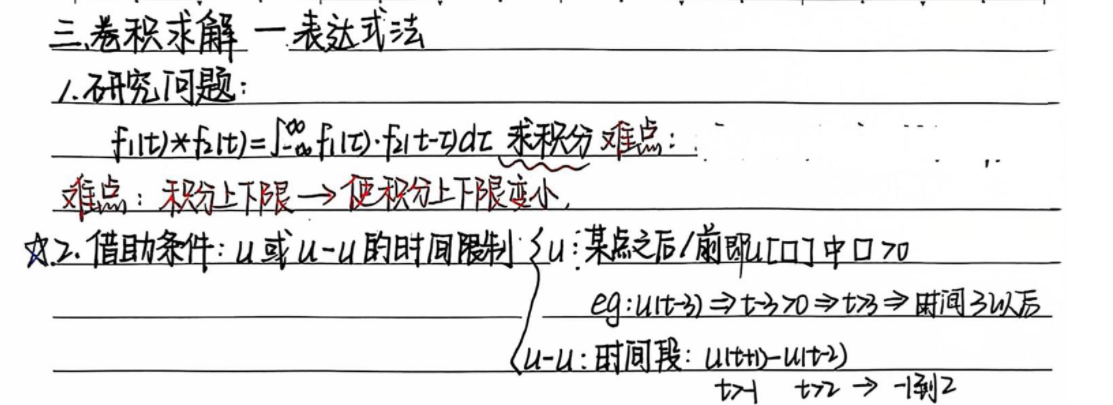 三、卷积求解 — 表达式法
1.研究问题:
f₁(t)*f₂(t)=∫₋∞^∞ f₁(τ)·f₂(t-τ)dτ 求积分 难点:
难点: 积分上下限→使积分上下限变小.
☆2.借助条件: u或u-u的时间限制 { u:某点之后/前即u[口]中口>0
eg:u(t-3)⇒t-3>0⇒t>3⇒时间3以后
u-u:时间段: u(t+1)-u(t-2)
t>-1 t>2 → -1到2